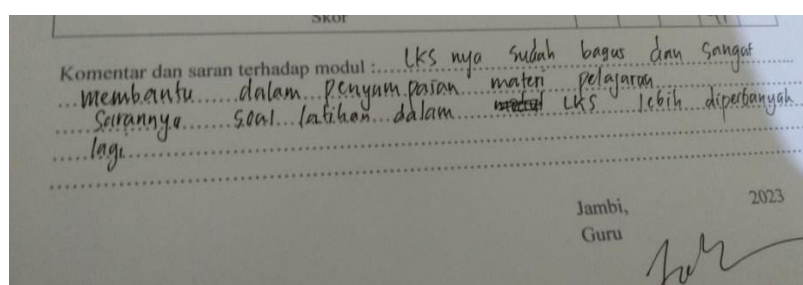 Skor
Komentar dan saran terhadap modul : LKS nya sudah bagus dan sangat
membantu dalam penyampaian materi pelajaran
Sarannya soal latihan dalam LKS lebih diperbanyak
lagi
Jambi, 2023
Guru